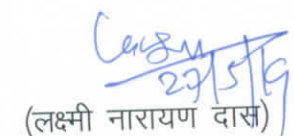 27/5/19
(लक्ष्मी नारायण दास)